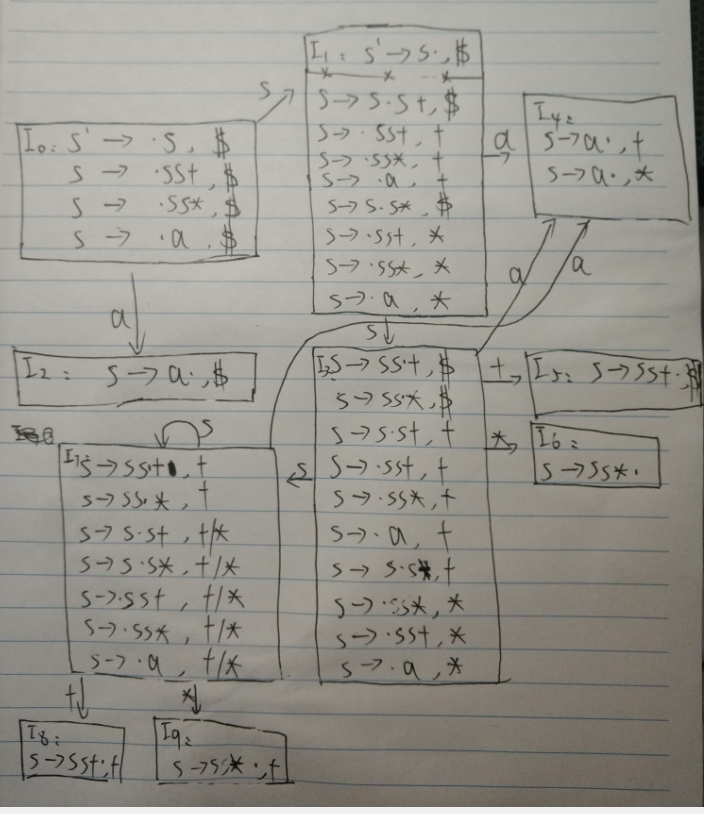 I₀: S' → ·S, $
S → ·SS+, $
S → ·SS*, $
S → ·a, $
S
I₁: S' → S·, $
S → S·S+, $
S → ·SS+, +
S → ·SS*, +
S → ·a, +
S → S·S*, $
S → ·SS+, *
S → ·SS*, *
S → ·a, *
a
I₄:
S → a·, +
S → a·, *
a
I₂: S → a·, $
S
a
a
I₃ S → SS·+, $
S → SS·*, $
S → S·S+, +
S → ·SS+, +
S → ·SS*, +
S → ·a, +
S → S·S*, +
S → ·SS*, *
S → ·SS+, *
S → ·a, *
+
I₅: S → SS+·, $
*
I₆:
S → SS*·
S
S
I₇: S → SS·+, +
S → SS·*, +
S → S·S+, +/*
S → S·S*, +/*
S → ·SS+, +/*
S → ·SS*, +/*
S → ·a, +/*
+
*
I₈:
S → SS+·, +
I₉:
S → SS*·, +